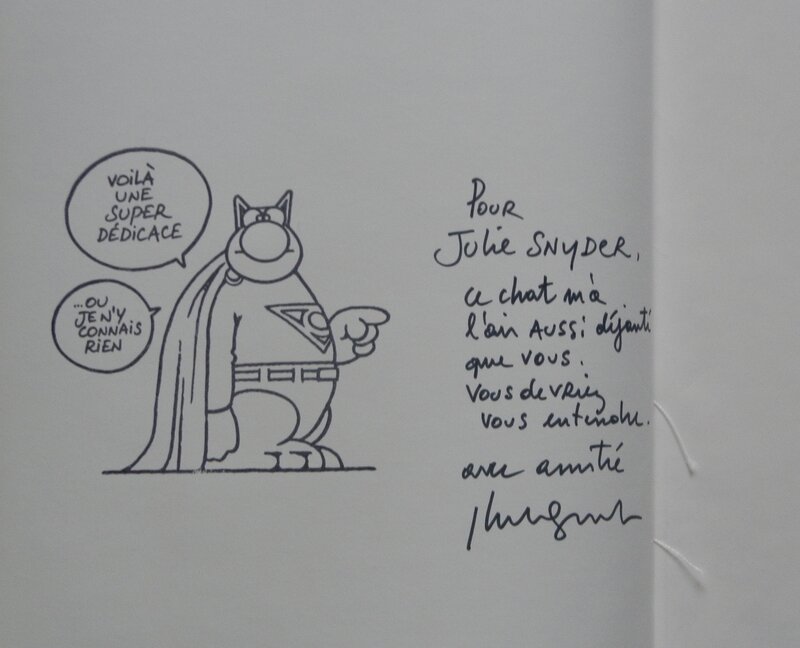 VOILÀ
UNE
SUPER
DÉDICACE
...OU
JE N'Y
CONNAIS
RIEN
POUR
JULIE SNYDER,
ce chat m'a
l'air AUSSI déjanté
que vous.
vous devriez
vous entendre.
avec amitié